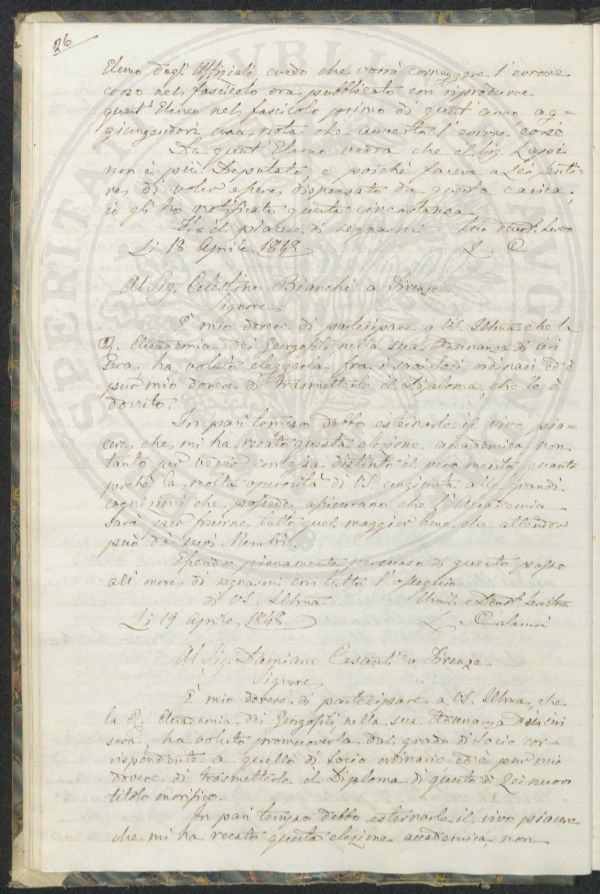 26
Elenco degli Uffiziali credo che vorrà correggere l'errore
corso nel fascicolo ora pubblicato con riprodurre
quest'Elenco nel fascicolo primo di quest'anno, ag=
giungendovi una nota che avverta l'errore corso
Da quest'Elenco vedrà che il Sig.
non è più Deputato, e poichè faceva a Lei senti=
re, di voler essere dispensato da questa carica,
io gli ho notificato questa circostanza.
Ho il piacere di segnarmi
Li 18 Aprile 1848 L. C
Al Sig. Celestino Bianchi a Firenze
Signore
È mio dovere di partecipare a VS. Illma che la
R. Accademia dei Georgofili nella sua Adunanza di ieri
sera, ha voluto eleggerla fra i suoi Soci ordinari ed è
pur mio dovere di trasmetterle il Diploma, che le è
dovuto.
In pari tempo debbo esternarle il vivo pia=
cere, che mi ha recato questa elezione accademica non
tanto per veder con essa distinto il vero merito, quanto
perchè la molta operosità di VS. congiunta alle grandi
cognizioni che possiede assicurano che l'Accademia
sarà per trarne tutto quel maggior bene, che attender
può dei suoi Membri.
Essendo pienamente persuaso di questo passo
all'onore di segnarmi con tutto l'ossequio
di VS. Illma
Li 19 Aprile 1848 L. Calamai
Al Sig. Damiano Casanti a Firenze
Signore,
È mio dovere di partecipare a VS. Illma, che
la R. Accademia dei Georgofili nella sua Adunanza di ieri
sera, ha voluto promuoverla dal grado di Socio cor=
rispondente a quello di Socio ordinario ed è pur mio
dovere di trasmetterle il Diploma di questo di Lei nuovo
titolo onorifico.
In pari tempo debbo esternarle il vivo piacere
che mi ha recato questa elezione accademica, non